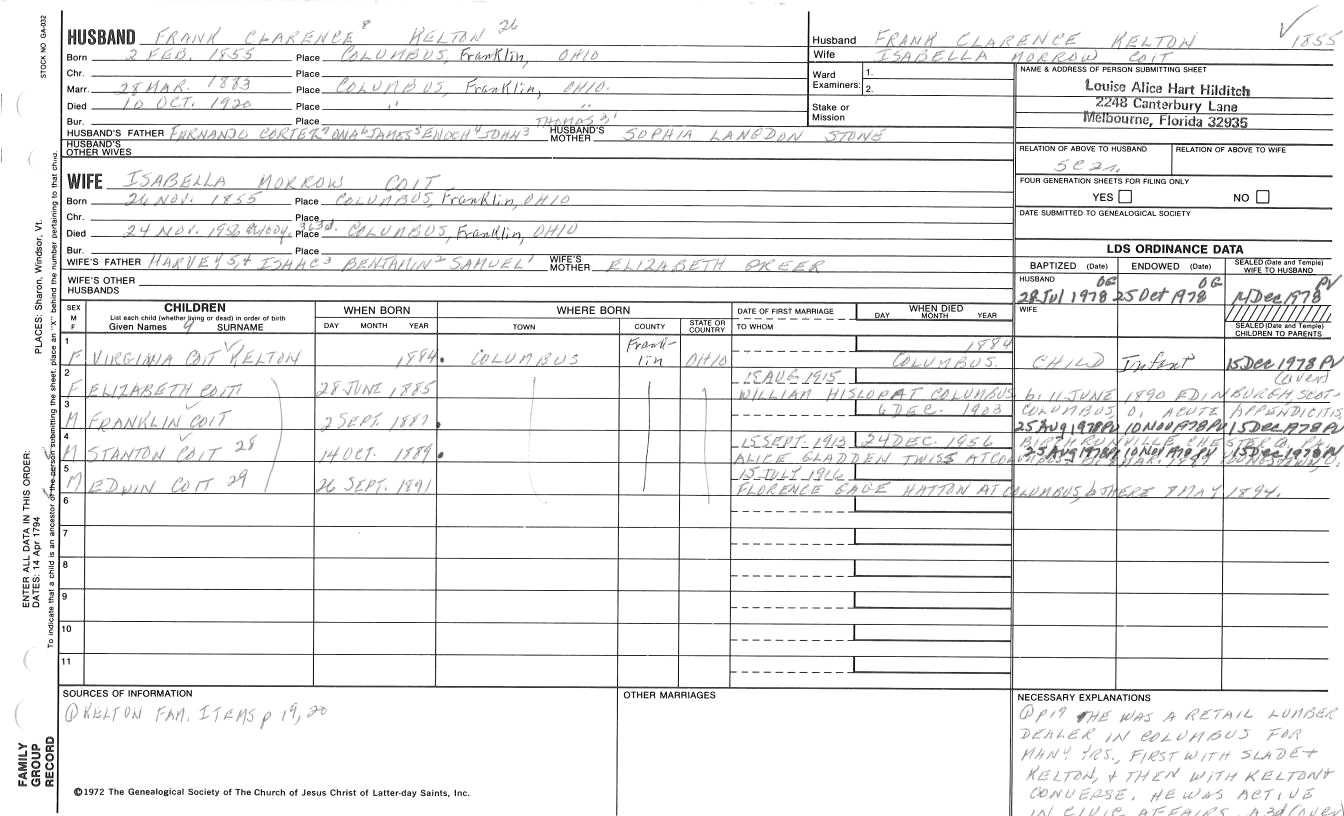 STOCK NO. GA-032
HUSBAND FRANK CLARENCE 8 KELTON 26
Born 2 FEB. 1855 Place COLUMBUS, Franklin, OHIO
Chr. Place
Marr. 28 MAR. 1883 Place COLUMBUS, Franklin, OHIO.
Died 10 OCT. 1920 Place " "
Bur. Place
HUSBAND'S FATHER FERNANDO CORTEZ 7 JONA 6 JAMES 5 ENOCH 4 JOHN 3 THOMAS 2,1 HUSBAND'S MOTHER SOPHIA LANGDON STONE
HUSBAND'S OTHER WIVES
WIFE ISABELLA MORROW COIT
Born 26 NOV. 1855 Place COLUMBUS, Franklin, OHIO
Chr. Place
Died 24 NOV. 1956 100y. 363d. Place COLUMBUS, Franklin, OHIO
Bur. Place
WIFE'S FATHER HARVEY 5,4 ISAAC 3 BENJAMIN 2 SAMUEL 1 WIFE'S MOTHER ELIZABETH GREER
WIFE'S OTHER HUSBANDS
Husband FRANK CLARENCE KELTON 1855
Wife ISABELLA MORROW COIT
Ward Examiners: 1.
2.
Stake or Mission
NAME & ADDRESS OF PERSON SUBMITTING SHEET
Louise Alice Hart Hilditch
2248 Canterbury Lane
Melbourne, Florida 32935
RELATION OF ABOVE TO HUSBAND RELATION OF ABOVE TO WIFE
5C2r.
FOUR GENERATION SHEETS FOR FILING ONLY
YES NO
DATE SUBMITTED TO GENEALOGICAL SOCIETY
LDS ORDINANCE DATA
BAPTIZED (Date) ENDOWED (Date) SEALED (Date and Temple) WIFE TO HUSBAND
HUSBAND OG OG PV
28 Jul 1978 25 Oct 1978 14 Dec 1978
WIFE
SEALED (Date and Temple) CHILDREN TO PARENTS
SEX M F CHILDREN WHEN BORN WHERE BORN DATE OF FIRST MARRIAGE WHEN DIED
List each child (whether living or dead) in order of birth
Given Names 9 SURNAME DAY MONTH YEAR TOWN COUNTY STATE OR COUNTRY TO WHOM DAY MONTH YEAR
1 F VIRGINIA COIT KELTON 1884. COLUMBUS Franklin OHIO 1884 COLUMBUS. CHILD Infant 15Dec1978PV
2 F ELIZABETH COIT 28 JUNE 1885 15 AUG 1915 (over)
WILLIAM HISLOP AT COLUMBUS b. 11 JUNE 1890 EDINBURGH, SCOT-
3 M FRANKLIN COIT 2 SEPT. 1887. 6 DEC. 1903 COLUMBUS, O. ACUTE APPENDICITIS
25Aug1978PV 10Nov1978PV 15Dec1978PV
4 M STANTON COIT 28 14 OCT. 1889. 15 SEPT. 1913 24 DEC. 1956
ALICE GLADDEN TWISS AT 25Aug1978PV 10Nov1978PV 15Dec1978PV
5 M EDWIN COIT 29 26 SEPT. 1891 15 JULY 1916
FLORENCE GAGE HATTON AT COLUMBUS, b THERE 8 MAY 1894.
6
7
8
9
10
11
SOURCES OF INFORMATION
① KELTON FAM. ITEMS p 19, 20
OTHER MARRIAGES
NECESSARY EXPLANATIONS
① p19 HE WAS A RETAIL LUMBER
DEALER IN COLUMBUS FOR
MANY YRS., FIRST WITH SLADE +
KELTON, + THEN WITH KELTON +
CONVERSE. HE WAS ACTIVE
IN CIVIC AFFAIRS. (over)
©1972 The Genealogical Society of The Church of Jesus Christ of Latter-day Saints, Inc.
PLACES: Sharon, Windsor, Vt.
ENTER ALL DATA IN THIS ORDER:
DATES: 14 Apr 1794
To indicate that a child is an ancestor of the person submitting the sheet, place an "X" behind the number pertaining to that child.
FAMILY GROUP RECORD